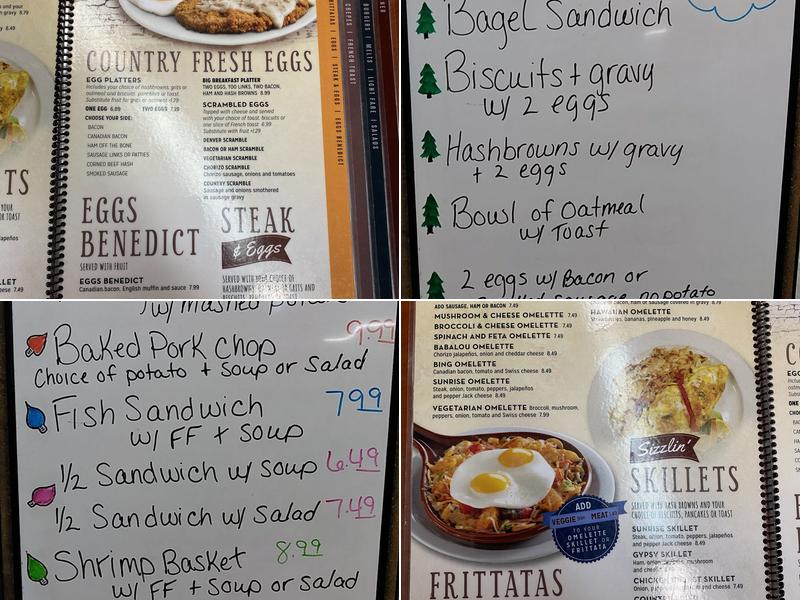 8.79
8.49
COUNTRY FRESH EGGS
EGG PLATTERS
Includes your choice of hashbrowns, grits or
oatmeal and biscuits, pancakes or toast.
Substitute fruit for grits or oatmeal +1.29
ONE EGG 6.89 TWO EGGS 7.79
CHOOSE YOUR SIDE:
BACON
CANADIAN BACON
HAM OFF THE BONE
SAUSAGE LINKS OR PATTIES
CORNED BEEF HASH
SMOKED SAUSAGE
BIG BREAKFAST PLATTER
TWO EGGS, TOO LINKS, TWO BACON,
HAM AND HASH BROWNS 8.99
SCRAMBLED EGGS
Topped with cheese and served
with your choice of toast, biscuits or
one slice of French toast 6.99
Substitute with fruit +1.29
DENVER SCRAMBLE
BACON OR HAM SCRAMBLE
VEGETARIAN SCRAMBLE
CHORIZO SCRAMBLE
Chorizo sausage, onions and tomatoes
COUNTRY SCRAMBLE
Sausage and onions smothered
in sausage gravy
EGGS
BENEDICT
SERVED WITH FRUIT
EGGS BENEDICT
Canadian bacon, English muffin and sauce 7.99
STEAK
& Eggs
SERVED WITH YOUR CHOICE OF
HASHBROWNS, GRITS AND
CREPES | FRENCH TOAST
FRITTATAS | EGGS | STEAK & EGGS | EGGS BENEDICT
BURGERS | MELTS | LIGHT FARE | SALADS
Bagel Sandwich
Biscuits + gravy
w/ 2 eggs
Hashbrowns w/ gravy
+ 2 eggs
Bowl of Oatmeal
w/ Toast
2 eggs w/ Bacon or
sausage, no potato
w/ mashed potato
Baked Pork Chop 9.99
Choice of potato + Soup or Salad
Fish Sandwich 7.99
w/ FF + Soup
1/2 Sandwich w/ soup 6.49
1/2 Sandwich w/ Salad 7.49
Shrimp Basket 8.99
w/ FF + Soup or salad
ADD SAUSAGE, HAM OR BACON 7.49
MUSHROOM & CHEESE OMELETTE 7.49
BROCCOLI & CHEESE OMELETTE 7.49
SPINACH AND FETA OMELETTE 7.49
BABALOU OMELETTE
Chorizo jalapeños, onion and cheddar cheese 8.49
BING OMELETTE
Canadian bacon, tomato and Swiss cheese 8.49
SUNRISE OMELETTE
Steak, onion, tomato, peppers, jalapeños
and pepper Jack cheese 8.49
VEGETARIAN OMELETTE Broccoli, mushroom,
peppers, onion, tomato and Swiss cheese 7.99
HAWAIIAN OMELETTE
Strawberries, bananas, pineapple and honey 8.49
ADD
VEGGIE MEAT
TO YOUR
OMELETTE
SKILLET OR
FRITTATA
Sizzlin'
SKILLETS
SERVED WITH HASH BROWNS AND YOUR
CHOICE OF BISCUITS, PANCAKES OR TOAST
SUNRISE SKILLET
Steak, onion, tomato, peppers, jalapeños
and pepper Jack cheese 8.49
GYPSY SKILLET
Ham, onion, mushroom
SKILLET
FRITTATAS